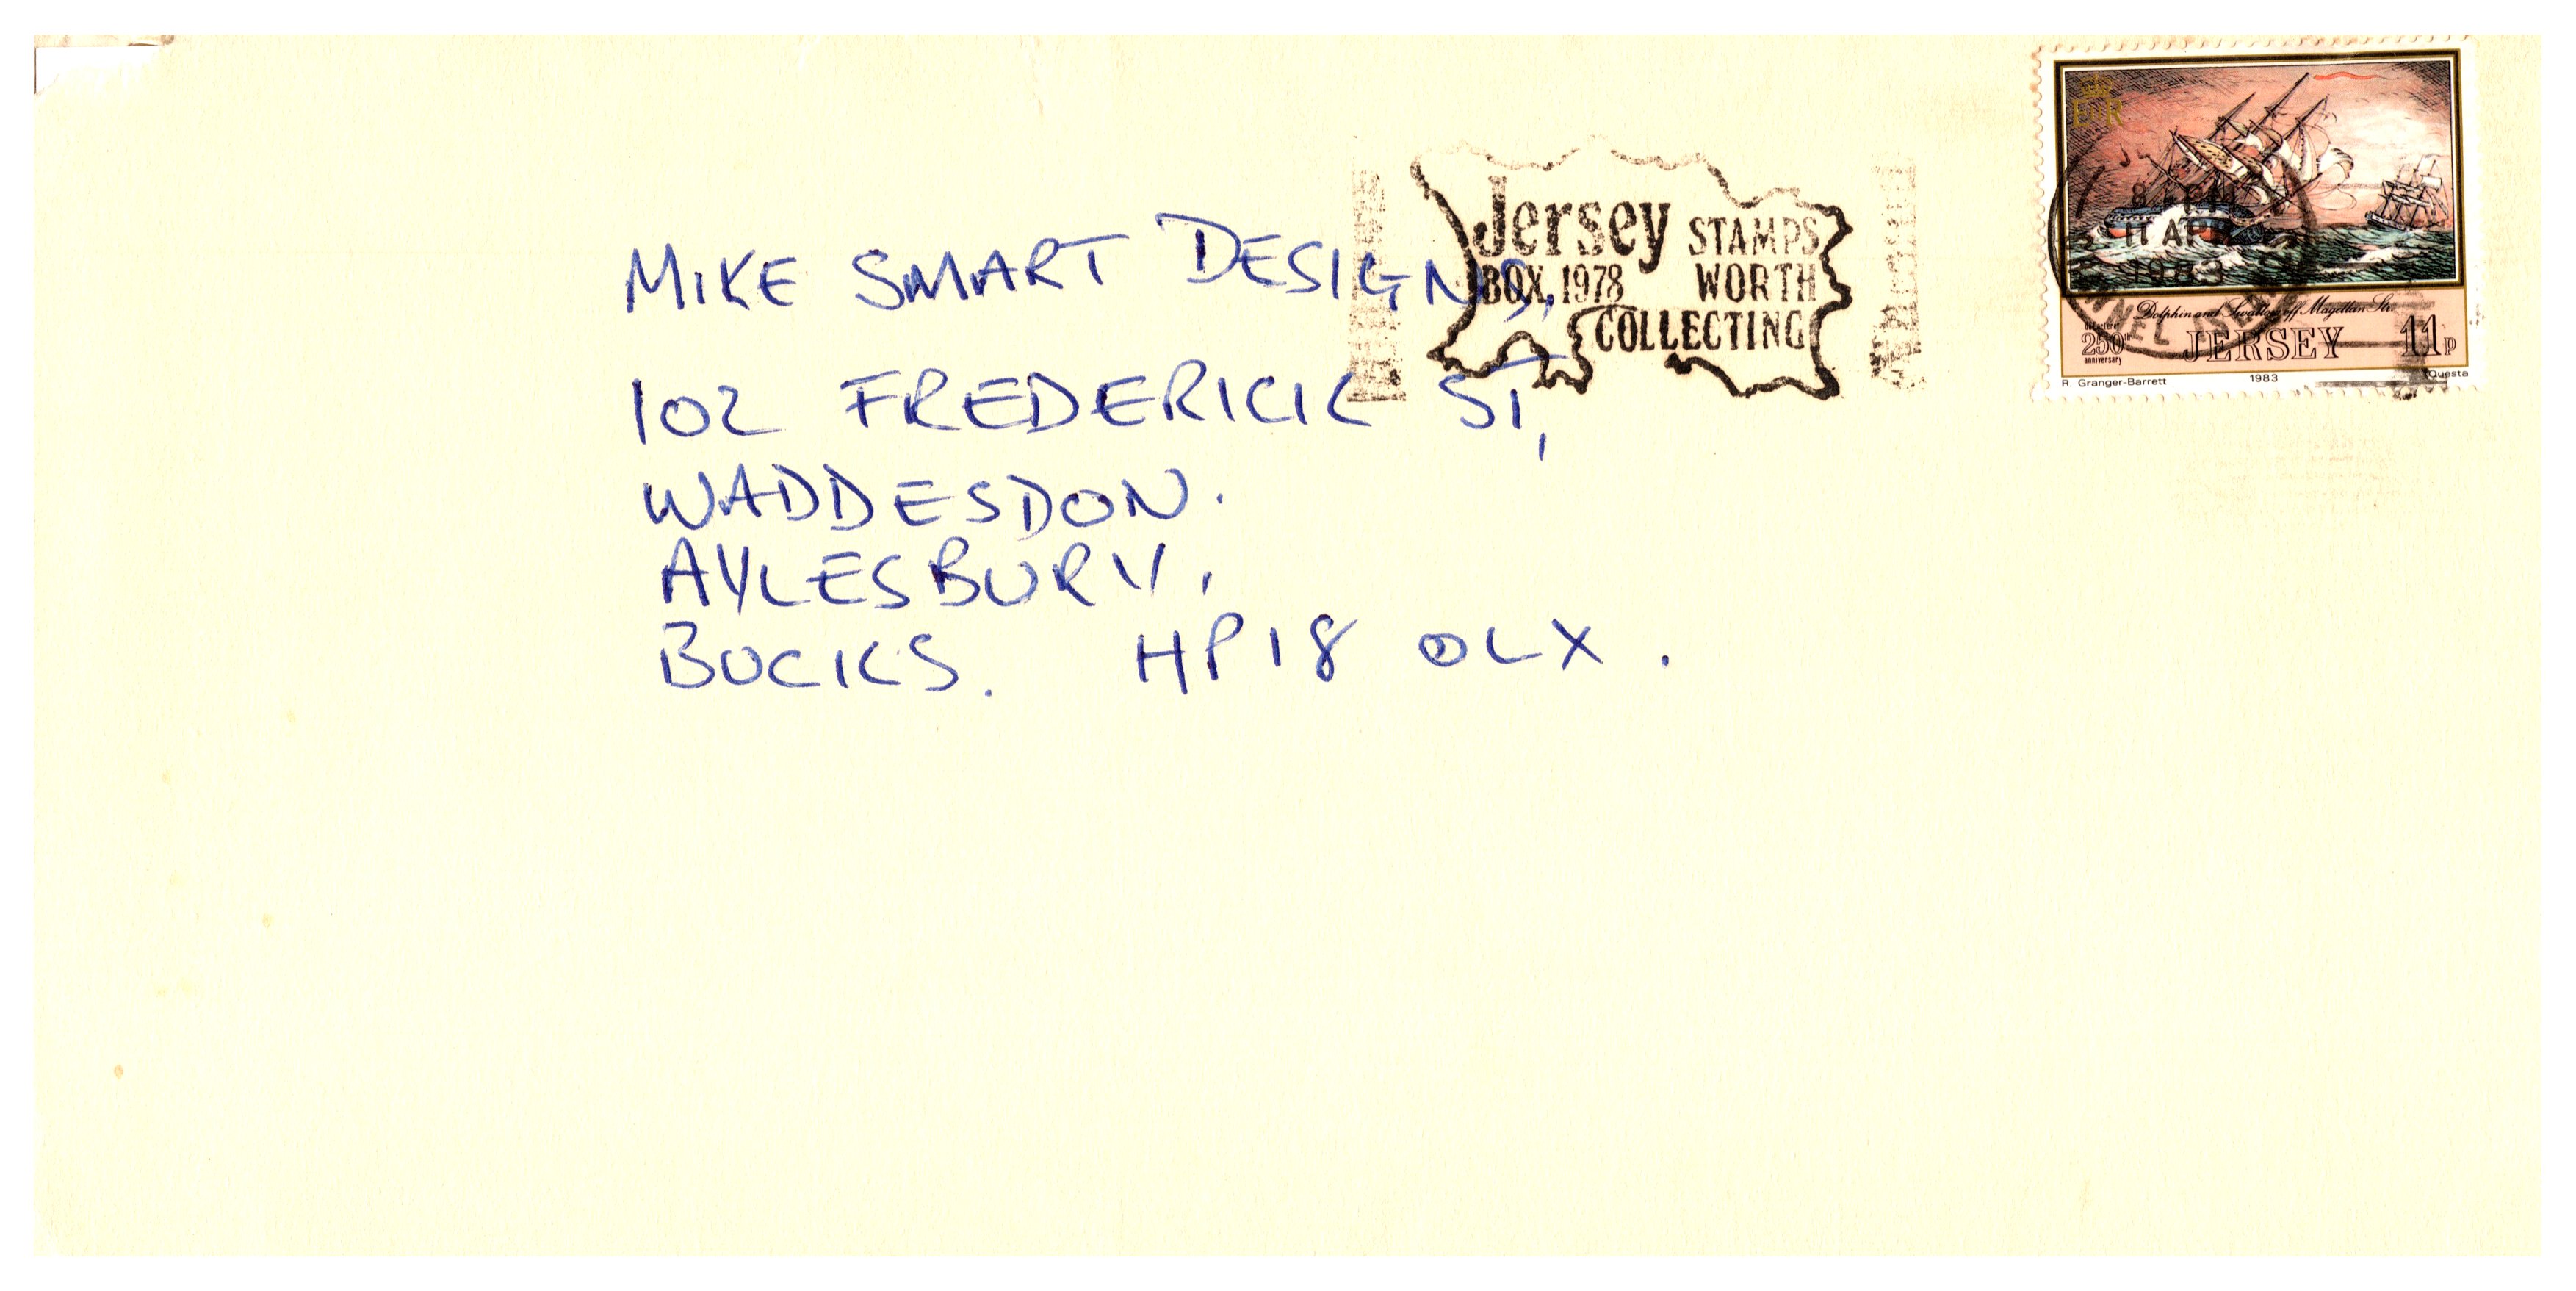 MIKE SMART DESIGNS,
102 FREDERICK ST,
WADDESDON.
AYLESBURY,
BUCKS. HP18 0LX.
Jersey STAMPS
BOX, 1978 WORTH
COLLECTING
E R
8 PM
11 APR
1983
CHANNEL ISLANDS
Dolphin and Swallow off Magellan Str.
250th anniversary JERSEY 11p
R. Granger-Barrett 1983 Questa